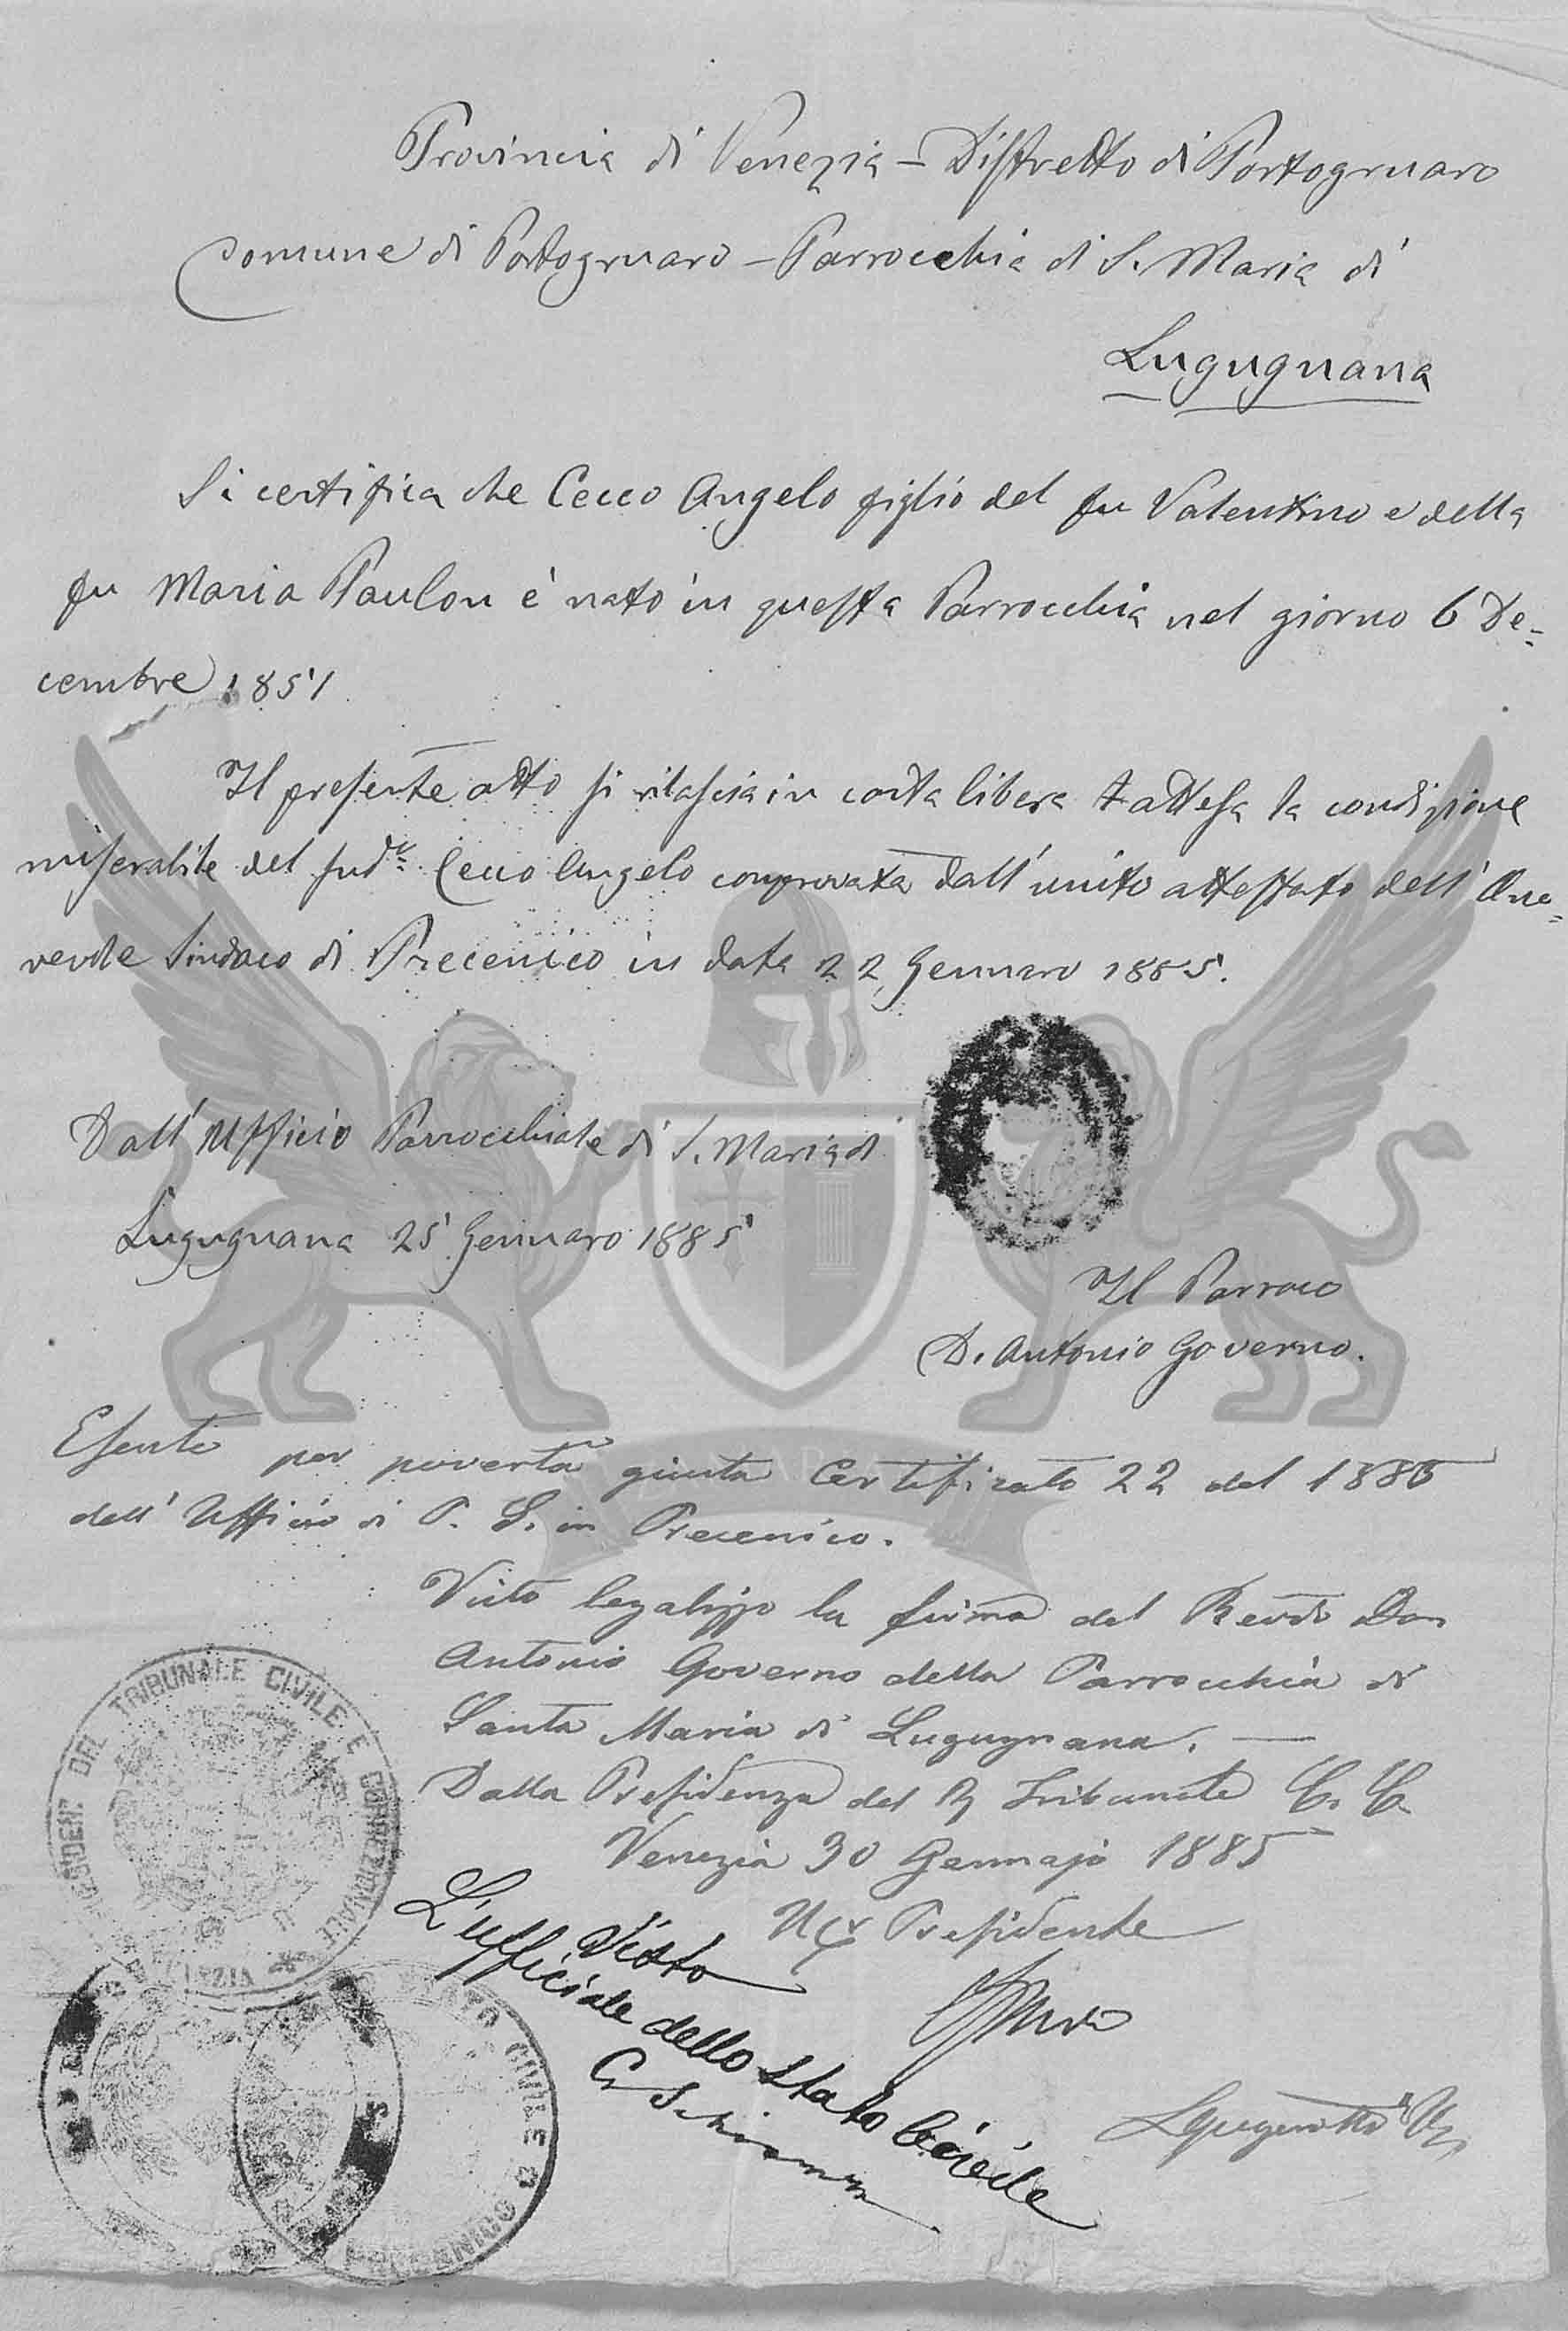 Provincia di Venezia – Distretto di Portogruaro
Comune di Portogruaro – Parrocchia di S. Maria di
Lugugnana
Si certifica che Cecco Angelo figlio del fu Valentino e della
fu Maria Paulon è nato in questa Parrocchia nel giorno 6 De=
cembre 1851
Il presente atto si rilascia in carta libera attesa la condizione
miserabile del sud.º Cecco Angelo comprovata dall'unito attestato dell'Ono=
revole Sindaco di Precenico in data 22 Gennaro 1885.
Dall'Ufficio Parrocchiale di S. Maria di
Lugugnana 25 Gennaro 1885
Il Parroco
D. Antonio Governo.
Esente per povertà giusta Certificato 22 del 1885
dell'Ufficio di P. S. in Precenico.
Visto legalizzo la firma del Revdo Don
Antonio Governo della Parrocchia di
Santa Maria di Lugugnana. —
Dalla Presidenza del R Tribunale C. C.
Venezia 30 Gennajo 1885
Presidente
Visto
L'ufficiale dello Stato Civile
DEL TRIBUNALE CIVILE E CORREZIONALE
VENEZIA
STATO CIVILE